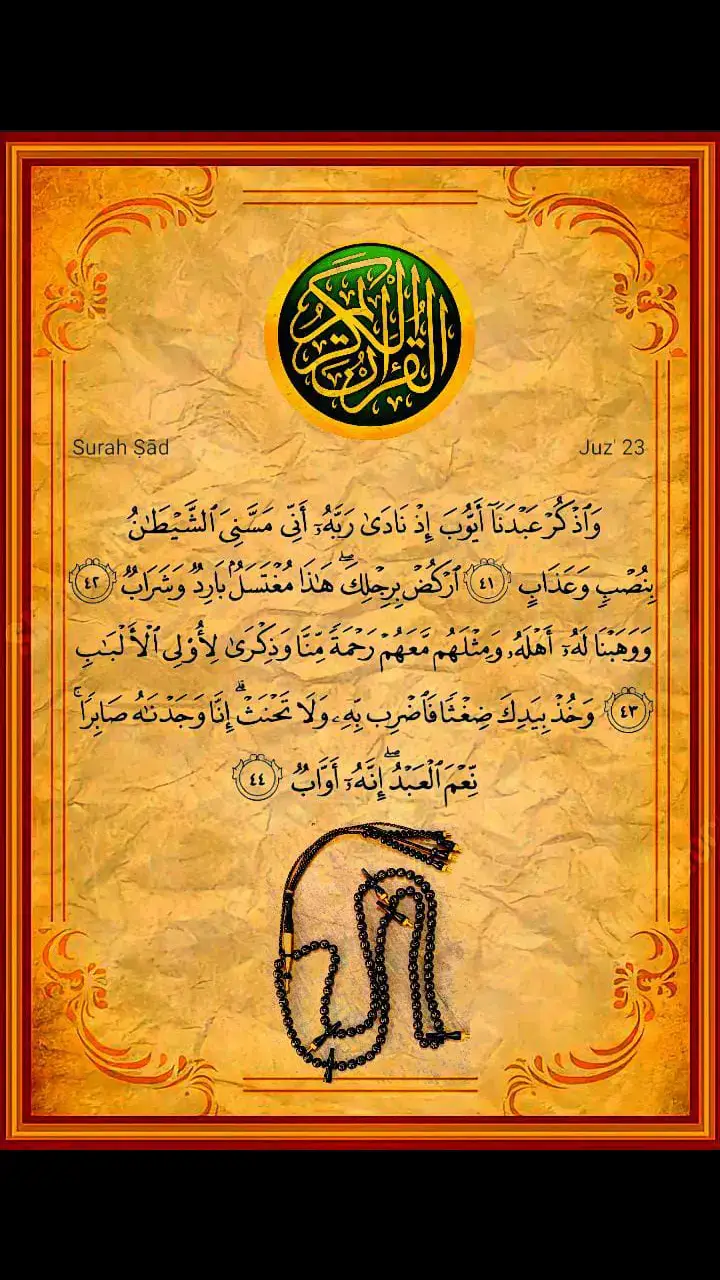 القرآن الكريم
Surah Ṣād
Juz' 23
وَٱذْكُرْ عَبْدَنَآ أَيُّوبَ إِذْ نَادَىٰ رَبَّهُۥٓ أَنِّى مَسَّنِىَ ٱلشَّيْطَـٰنُ
بِنُصْبٍ وَعَذَابٍ ٤١ ٱرْكُضْ بِرِجْلِكَ ۖ هَـٰذَا مُغْتَسَلٌۢ بَارِدٌ وَشَرَابٌ ٤٢
وَوَهَبْنَا لَهُۥٓ أَهْلَهُۥ وَمِثْلَهُم مَّعَهُمْ رَحْمَةً مِّنَّا وَذِكْرَىٰ لِأُو۟لِى ٱلْأَلْبَـٰبِ
٤٣ وَخُذْ بِيَدِكَ ضِغْثًا فَٱضْرِب بِّهِۦ وَلَا تَحْنَثْ ۗ إِنَّا وَجَدْنَـٰهُ صَابِرًا ۚ
نِّعْمَ ٱلْعَبْدُ ۖ إِنَّهُۥٓ أَوَّابٌ ٤٤